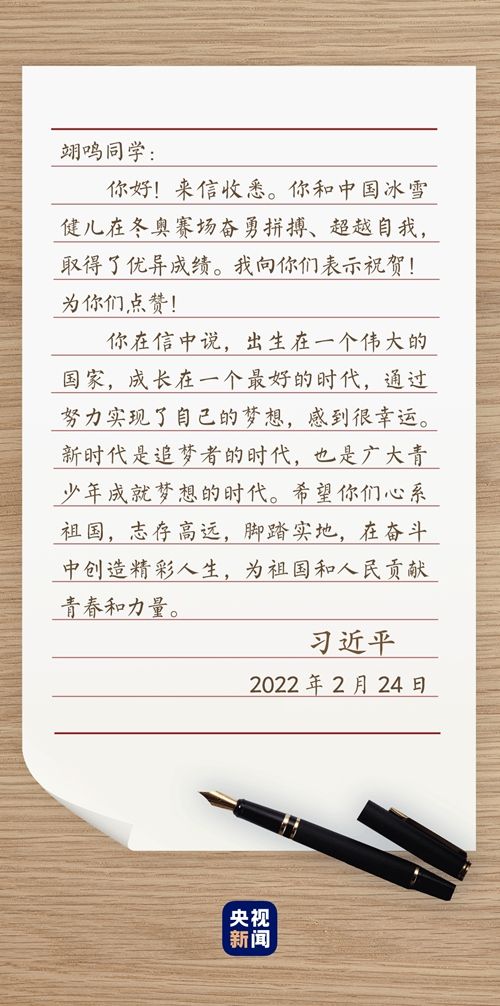 翊鸣同学：
你好！来信收悉。你和中国冰雪
健儿在冬奥赛场奋勇拼搏、超越自我，
取得了优异成绩。我向你们表示祝贺！
为你们点赞！
你在信中说，出生在一个伟大的
国家，成长在一个最好的时代，通过
努力实现了自己的梦想，感到很幸运。
新时代是追梦者的时代，也是广大青
少年成就梦想的时代。希望你们心系
祖国，志存高远，脚踏实地，在奋斗
中创造精彩人生，为祖国和人民贡献
青春和力量。
习近平
2022 年 2 月 24 日
央视
新闻